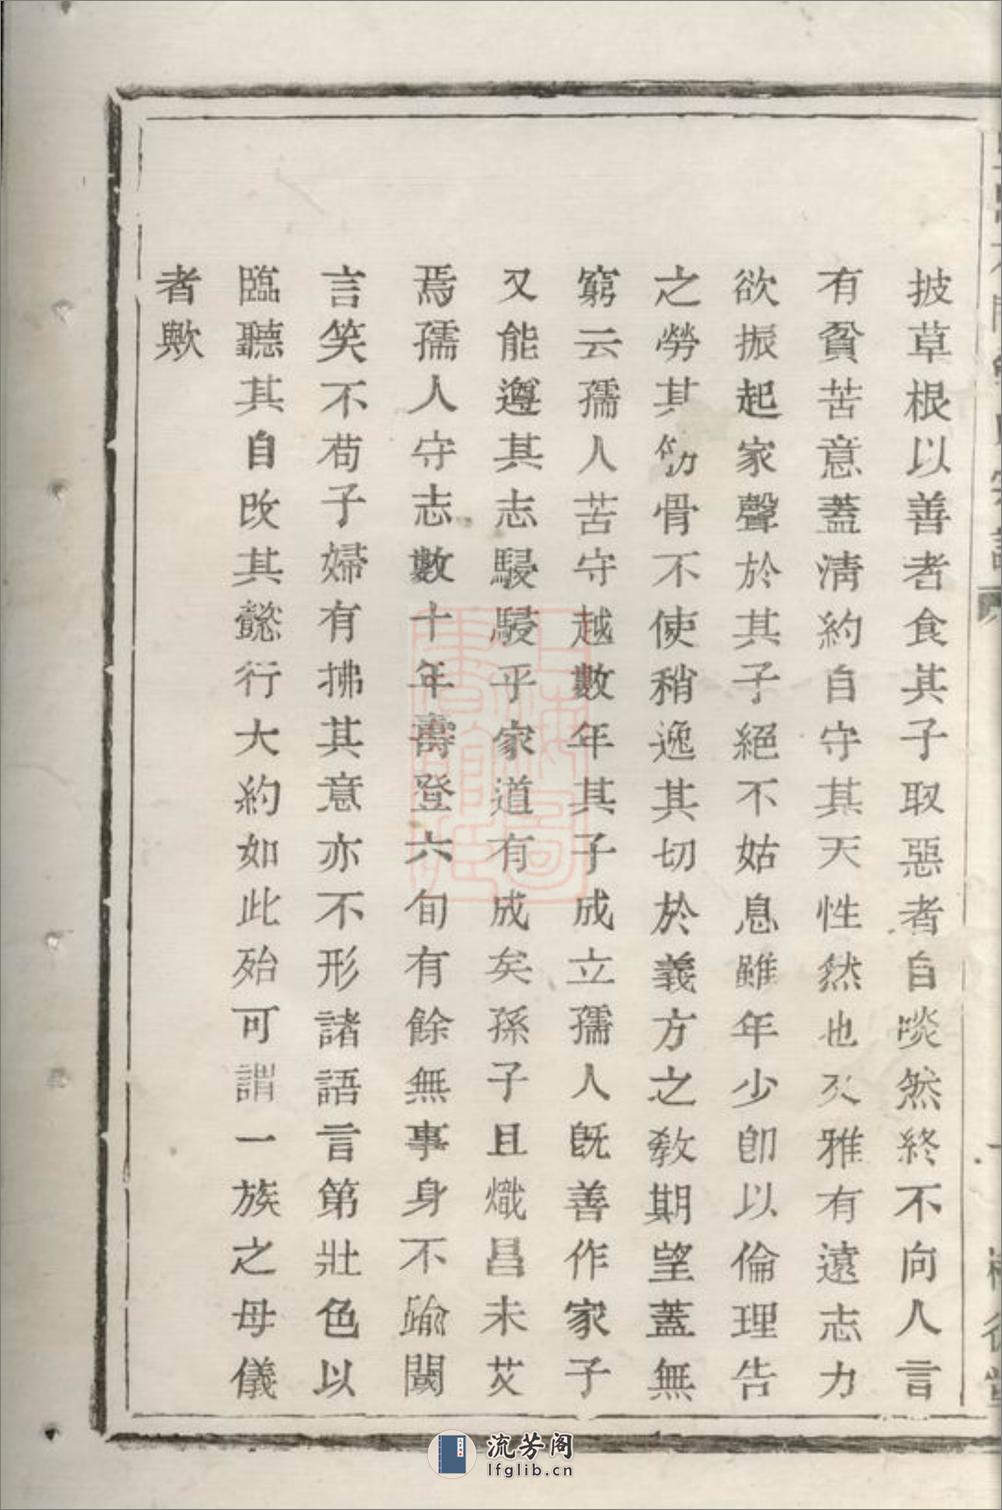 披草根以善者食其子取惡者自啖然終不向人言
有貧苦意蓋淸約自守其天性然也又雅有遠志力
欲振起家聲於其子絕不姑息雖年少卽以倫理告
之勞其筋骨不使稍逸其切於義方之敎期望蓋無
窮云孺人苦守越數年其子成立孺人旣善作家子
又能遵其志駸駸乎家道有成矣孫子且熾昌未艾
焉孺人守志數十年壽登六旬有餘無事身不踰閾
言笑不苟子婦有拂其意亦不形諸語言第壯色以
臨聽其自改其懿行大約如此殆可謂一族之母儀
者歟
流芳阁
lfglib.cn